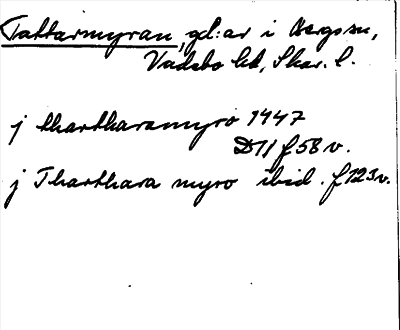 Tattarmyran, gd:ar i Bergs sn,
Vadsbo hd, Skar. l.
j thartharamyro 1447
D 11 f 58 v.
j Tharthara myro ibid. f 123 v.